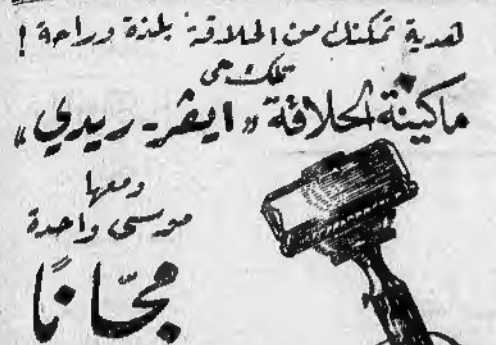 هدية تمكنك من الحلاقة بلذة وراحة !
تلك هى
ماكينة الحلاقة «ايفر - ريدي»
ومعها
موسى واحدة
مجّانًا